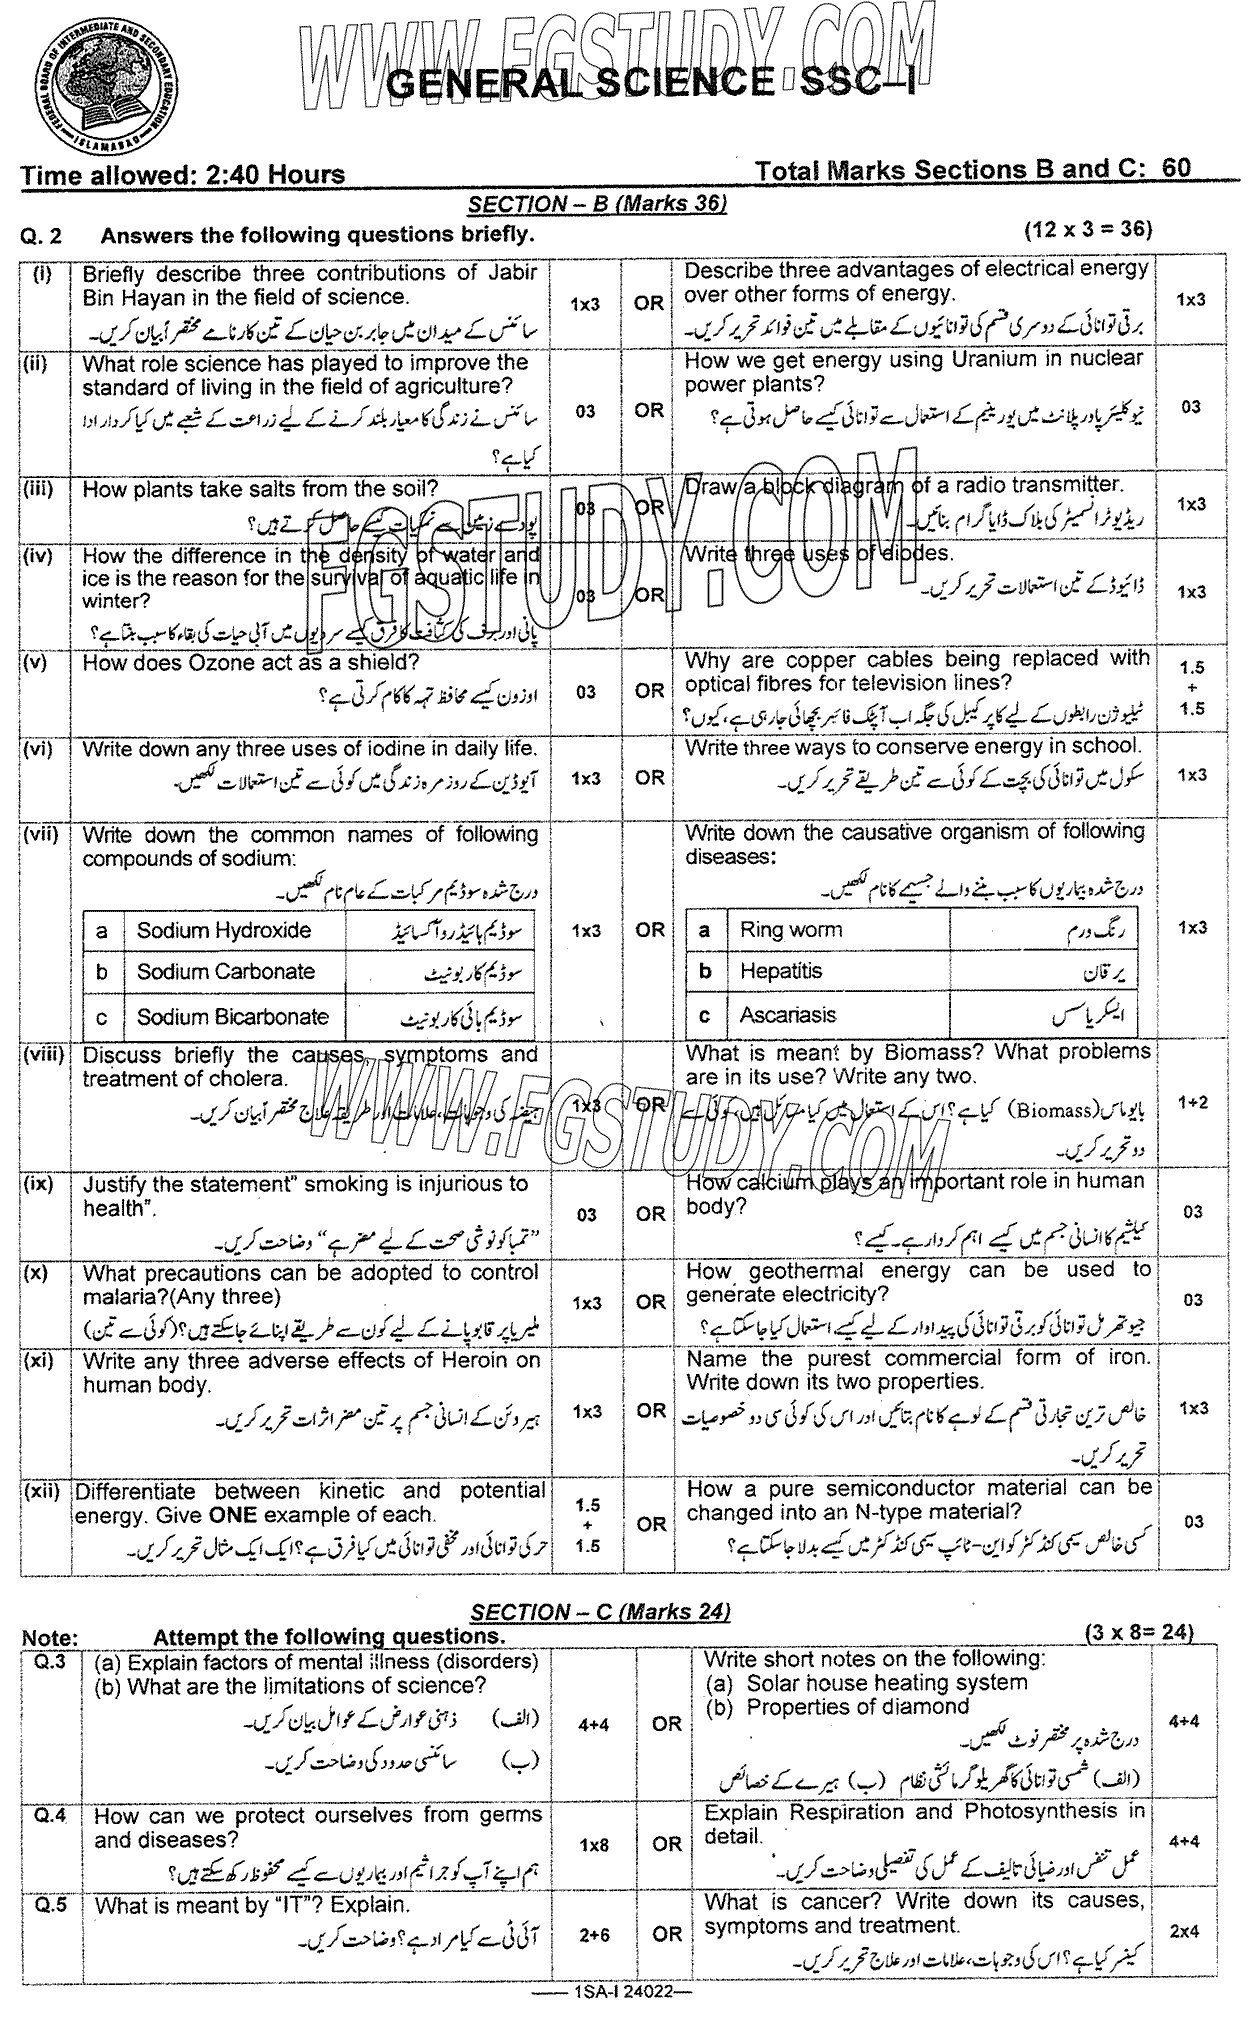 WWW.FGSTUDY.COM
FEDERAL BOARD OF INTERMEDIATE AND SECONDARY EDUCATION
ISLAMABAD
GENERAL SCIENCE SSC–I
Time allowed: 2:40 Hours
Total Marks Sections B and C: 60
SECTION – B (Marks 36)
Q. 2 Answers the following questions briefly.
(12 x 3 = 36)
(i) Briefly describe three contributions of Jabir
Bin Hayan in the field of science.
سائنس کے میدان میں جابر بن حیان کے تین کارنامے مختصراً بیان کریں۔
1x3
OR
Describe three advantages of electrical energy
over other forms of energy.
برقی توانائی کے دوسری قسم کی توانائیوں کے مقابلے میں تین فوائد تحریر کریں۔
1x3
(ii) What role science has played to improve the
standard of living in the field of agriculture?
سائنس نے زندگی کا معیار بلند کرنے کے لیے زراعت کے شعبے میں کیا کردار ادا
کیا ہے؟
03
OR
How we get energy using Uranium in nuclear
power plants?
نیوکلیئر پاور پلانٹ میں یورینیم کے استعمال سے توانائی کیسے حاصل ہوتی ہے؟
03
(iii) How plants take salts from the soil?
پودے زمین سے نمکیات کیسے حاصل کرتے ہیں؟
03
OR
Draw a block diagram of a radio transmitter.
ریڈیو ٹرانسمیٹر کی بلاک ڈایا گرام بنائیں۔
1x3
FGSTUDY.COM
(iv) How the difference in the density of water and
ice is the reason for the survival of aquatic life in
winter?
پانی اور برف کی کثافت کا فرق کیسے سردیوں میں آبی حیات کی بقاء کا سبب بنتا ہے؟
03
OR
Write three uses of diodes.
ڈائیوڈ کے تین استعمالات تحریر کریں۔
1x3
(v) How does Ozone act as a shield?
اوزون کیسے محافظ تہہ کا کام کرتی ہے؟
03
OR
Why are copper cables being replaced with
optical fibres for television lines?
ٹیلیوژن رابطوں کے لیے کاپر کیبل کی جگہ اب آپٹک فائبر بچھائی جا رہی ہے، کیوں؟
1.5
+
1.5
(vi) Write down any three uses of iodine in daily life.
آیوڈین کے روزمرہ زندگی میں کوئی سے تین استعمالات لکھیں۔
1x3
OR
Write three ways to conserve energy in school.
سکول میں توانائی کی بچت کے کوئی سے تین طریقے تحریر کریں۔
1x3
(vii) Write down the common names of following
compounds of sodium:
درج شدہ سوڈیم مرکبات کے عام نام لکھیں۔
a Sodium Hydroxide سوڈیم ہائیڈرو آکسائیڈ
b Sodium Carbonate سوڈیم کاربونیٹ
c Sodium Bicarbonate سوڈیم بائی کاربونیٹ
1x3
OR
Write down the causative organism of following
diseases:
درج شدہ بیماریوں کا سبب بننے والے جسیمے کا نام لکھیں۔
a Ring worm رنگ ورم
b Hepatitis یرقان
c Ascariasis ایسکریاسس
1x3
(viii) Discuss briefly the causes, symptoms and
treatment of cholera.
ہیضے کی وجوہات، علامات اور طریقہ علاج مختصراً بیان کریں۔
1x3
OR
What is meant by Biomass? What problems
are in its use? Write any two.
بایو ماس (Biomass) کیا ہے؟ اس کے استعمال میں کیا مسائل ہیں، کوئی سے
دو تحریر کریں۔
1+2
WWW.FGSTUDY.COM
(ix) Justify the statement" smoking is injurious to
health".
"تمباکو نوشی صحت کے لیے مضر ہے" وضاحت کریں۔
03
OR
How calcium plays an important role in human
body?
کیلشیم کا انسانی جسم میں کیسے اہم کردار ہے۔ کیسے؟
03
(x) What precautions can be adopted to control
malaria?(Any three)
ملیریا پر قابو پانے کے لیے کون سے طریقے اپنائے جا سکتے ہیں؟ (کوئی سے تین)
1x3
OR
How geothermal energy can be used to
generate electricity?
جیو تھرمل توانائی کو برقی توانائی کی پیداوار کے لیے کیسے استعمال کیا جا سکتا ہے؟
03
(xi) Write any three adverse effects of Heroin on
human body.
ہیروئن کے انسانی جسم پر تین مضر اثرات تحریر کریں۔
1x3
OR
Name the purest commercial form of iron.
Write down its two properties.
خالص ترین تجارتی قسم کے لوہے کا نام بتائیں اور اس کی کوئی سی دو خصوصیات
تحریر کریں۔
1x3
(xii) Differentiate between kinetic and potential
energy. Give ONE example of each.
حرکی توانائی اور مخفی توانائی میں کیا فرق ہے؟ ایک ایک مثال تحریر کریں۔
1.5
+
1.5
OR
How a pure semiconductor material can be
changed into an N-type material?
کسی خالص سیمی کنڈکٹر کو این-ٹائپ سیمی کنڈکٹر میں کیسے بدلا جا سکتا ہے؟
03
SECTION – C (Marks 24)
Note: Attempt the following questions.
(3 x 8= 24)
Q.3 (a) Explain factors of mental illness (disorders)
(b) What are the limitations of science?
(الف) ذہنی عوارض کے عوامل بیان کریں۔
(ب) سائنسی حدود کی وضاحت کریں۔
4+4
OR
Write short notes on the following:
(a) Solar house heating system
(b) Properties of diamond
درج شدہ پر مختصر نوٹ لکھیں۔
(الف) شمسی توانائی کا گھریلو گرمائشی نظام (ب) ہیرے کے خصائص
4+4
Q.4 How can we protect ourselves from germs
and diseases?
ہم اپنے آپ کو جراثیم اور بیماریوں سے کیسے محفوظ رکھ سکتے ہیں؟
1x8
OR
Explain Respiration and Photosynthesis in
detail.
عمل تنفس اور ضیائی تالیف کے عمل کی تفصیلی وضاحت کریں۔
4+4
Q.5 What is meant by "IT"? Explain.
آئی ٹی سے کیا مراد ہے؟ وضاحت کریں۔
2+6
OR
What is cancer? Write down its causes,
symptoms and treatment.
کینسر کیا ہے؟ اس کی وجوہات، علامات اور علاج تحریر کریں۔
2x4
—— 1SA-I 24022—